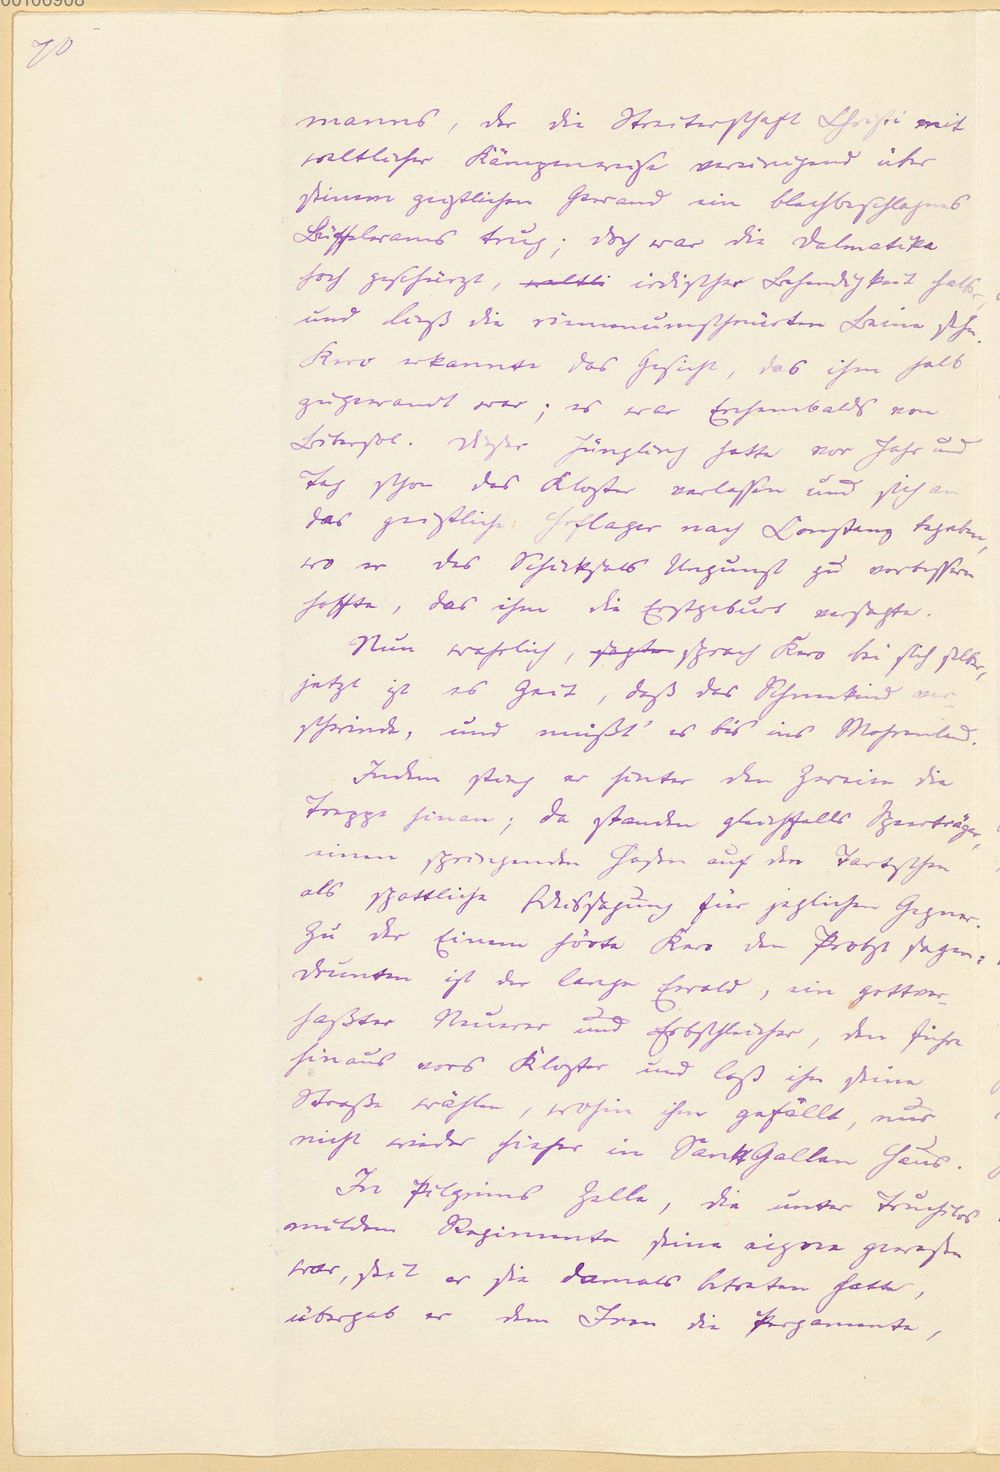 70
manns, der die Streiterschaft Christi mit
weltlicher Kämpenweise vereinigend über
seinem geistlichen Gewand ein blechbeschlagnes
Büffelwams trug; doch war die Dalmatika
hoch geschürzt, weltli irdischer Behendigkeit halber,
und ließ die riemenumschnürten Beine sehn.
Kero erkannte das Gesicht, das ihm halb
zugewandt war; es war Erchembalds von
Dieser Jüngling hatte vor Jahr und
Tag schon das Kloster verlassen und sich an
das geistliche Hoflager nach Constanz begeben,
wo er des Schicksals Ungunst zu verbessern
hoffte, das ihm die Erstgeburt versagte.
Nun wahrlich, sagte sprach Kero bei sich selber,
jetzt ist es Zeit, daß das Schneekind ver-
schwinde, und müßt' es bis ins Mohrenland.
Indem stieg er hinter den Zweien die
Treppe hinan; da standen gleichfalls Speerträger,
einen springenden Hasen auf den Tartschen
als spöttliche Weissagung für jeglichen Gegner.
Zu der Einem hörte Kero den Probst sagen:
drunten ist der lange Ewald, ein gottver-
haßter Neuerer und Erbschleicher, den führe
hinaus vors Kloster und laß ihn seine
Straße wählen, wohin ihm gefällt, nur
nicht wieder hieher in Sankt Gallen Haus.
In Pilgrims Zelle, die unter
mildem Regimente seine eigne gewesen
war, seit er sie damals betreten hatte,
übergab er dem Iren die Pergamente,